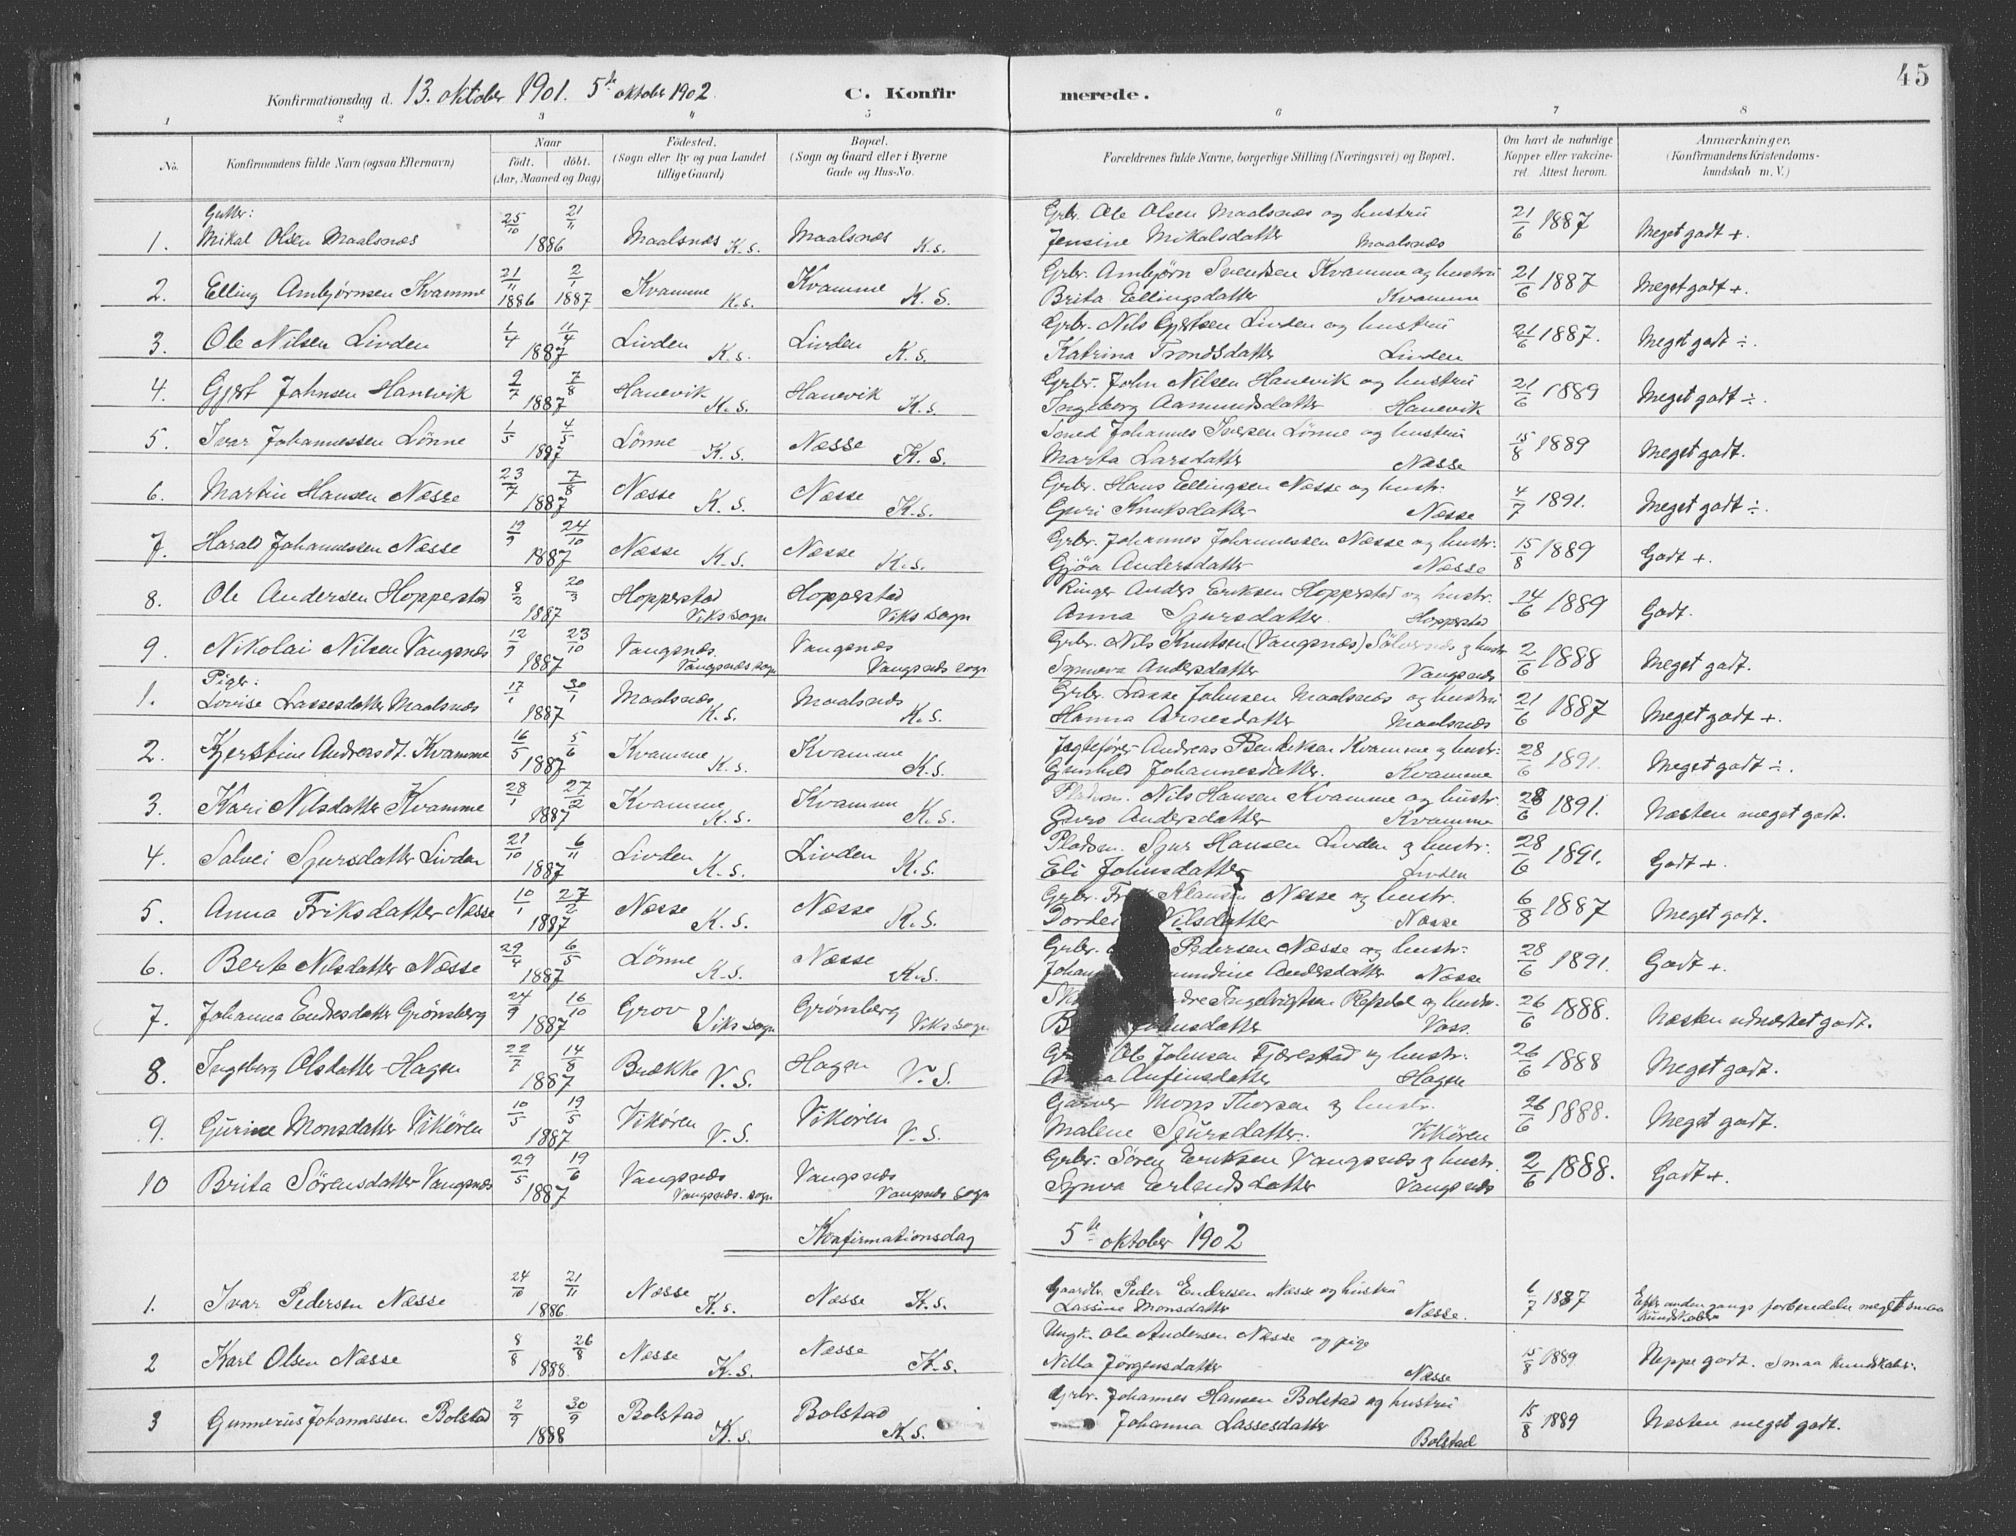 45
Konfirmationsdag d. 13. oktober 1901. 5te oktober 1902. C. Konfirmerede.
1 2 3 4 5 6 7 8
No. Konfirmandens fulde Navn (ogsaa Efternavn) Naar født. døbt. (Aar, Maaned og Dag) Födested. (Sogn eller By og paa Landet tillige Gaard) Bopæl. (Sogn og Gaard eller i Byerne Gade og Hus-No. Forældrenes fulde Navne, borgerlige Stilling (Næringsvei) og Bopæl. Om havt de naturlige Kopper eller vakcineret. Attest herom. Anmærkninger. (Konfirmandens Kristendomskundskab m. V.)
Gutter:
1. Mikal Olsen Maalsnæs 25/10 21/11 1886 Maalsnæs K.S. Maalsnæs K.S. Grbr. Ole Olsen Maalsnæs og hustru Jensine Mikalsdatter Maalsnæs 21/6 1887 Meget godt +.
2. Elling Ambjørnsen Kvamme 21/11 1886 2/1 1887 Kvamme K.S. Kvamme K.S. Grbr. Ambjørn Svendsen Kvamme og hustru Brita Ellingsdatter Kvamme 21/6 1887 Meget godt +.
3. Ole Nilsen Livden 1/4 11/4 1887 Livden K.S. Livden K.S. Grbr. Nils Gjertsen Livden og hustru Katrina Trondsdatter Livden 21/6 1887. Meget godt ÷.
4. Gjert Johnsen Hanevik 2/7 7/8 1887 Hanevik K.S. Hanevik K.S. Grbr. John Nilsen Hanevik og hustru Ingeborg Aamundsdatter Hanevik 21/6 1889 Meget godt ÷.
5. Ivar Johannessen Lønne 1/5 4/5 1887 Lønne K.S. Næsse K.S. Smed Johannes Iversen Lønne og hustru Marta Larsdatter Næsse 15/8 1889 Meget godt.
6. Martin Hansen Næsse 23/7 7/8 1887 Næsse K.S. Næsse K.S. Grbr. Hans Ellingsen Næsse og hustr. Guri Knutsdatter Næsse 4/7 1891. Meget godt ÷.
7. Harald Johannessen Næsse 19/9 24/10 1887 Næsse K.S. Næsse K.S. Grbr. Johannes Johannessen Næsse og hustr: Gjöa Andersdatter Næsse 15/8 1889 Godt +.
8. Ole Andersen Hopperstad 8/2 20/3 1887 Hopperstad Viks sogn Hopperstad Viks sogn Ringer Anders Eriksen Hopperstad og hustr. Anna Sjursdatter Hopperstad 24/6 1889 Godt.
9. Nikolai Nilsen Vangsnæs 12/9 23/10 1887 Vangsnæs. Vangsnæs sogn Vangsnæs Vangsnæs sogn Grbr. Nils Knutsen (Vangsnæs) og hustr Synneva Andersdatter Vangsnæs 2/6 1888 Meget godt.
Piger:
1. Lovise Lassesdatter Maalsnæs 17/1 30/1 1887 Maalsnæs K.S. Maalsnæs K.S. Grbr. Lasse Johnsen Maalsnæs og hustru Hanna Arnesdatter Maalsnæs 21/6 1887 Meget godt +.
2. Kjerstine Andreasdt. Kvamme 16/5 5/6 1887 Kvamme K.S. Kvamme K.S. Jægtefører Andreas Bendiksen Kvamme og hustr: Gunhild Johannesdatter. Kvamme 28/6 1891. Meget godt ÷.
3. Kari Nilsdatter Kvamme 28/1 27/2 1887 Kvamme K.S. Kvamme K.S. Pladsm. Nils Hansen Kvamme og hustr. Guro Andersdatter Kvamme 28/6 1891. Næsten meget godt.
4. Solvei Sjursdatter Livden 21/10 6/11 1887 Livden K.S. Livden K.S. Pladsm. Sjur Hansen Livden og hustr. Eli Johnsdatter Livden 28/6 1891. Godt +.
5. Anna Friksdatter Næsse 10/1 27/2 1887 Næsse K.S. Næsse K.S. Grbr. Næsse og hustr. Nilsdatter Næsse 6/8 1887 Meget godt.
6. Berte Nilsdatter Næsse 29/4 6/5 1887 Lønne K.S. Næsse K.S. Grbr. Pedersen Næsse og hustr: Andersdatter Næsse 28/6 1891. Godt +.
7. Johanna Endresdatter Grönsberg 24/9 16/10 1887 Grov Viks sogn Grønsberg Viks sogn Ingelvigtsen Repdal og hustr. Johnsdatter Voss. 26/6 1888. Næsten udmærket godt.
8. Ingeborg Olsdatter Hagen 22/7 14/8 1887 Brække V.S. Hagen V.S. Ole Johnsen Fjærestad og hustr: Anfinsdatter Hagen 26/6 1888 Meget godt.
9. Gurine Monsdatter Vikören 10/5 19/5 1887 Vikören V.S. Vikören V.S. Garver Mons Thorsen og hustr. Malene Sjursdatter. Vikören 26/6 1888. Meget godt.
10 Brita Sörensdatter Vangsnæs 29/5 19/6 1887 Vangsnæs Vangsnæs sogn Vangsnæs Vangsnæs sogn Grbr. Søren Eriksen Vangsnæs og hustr. Synva Erlendsdatter Vangsnæs 2/6 1888. Godt +.
Konfirmationsdag 5te oktober 1902
1. Ivar Pedersen Næsse 24/10 21/11 1886 Næsse K.S. Næsse K.S. Gaardbr. Peder Endresen Næsse og hustru Lassine Monsdatter Næsse. 6/7 1887 Efter anden gangs forberedelse meget smaa kundskaber
2 Karl Olsen Næsse 8/8 26/8 1888. Næsse K.S. Næsse K.S. Ungk. Ole Andersen Næsse og pige Nilla Jörgensdatter Næsse 15/8 1889 Neppe godt. Smaa kundskaber.
3 Gunnerius Johannessen Bolstad 2/9 30/9 1888 Bolstad K.S. Bolstad K.S. Grbr. Johannes Hansen Bolstad og hustru Johanna Lassesdatter Bolstad 15/8 1889 Næsten meget godt.